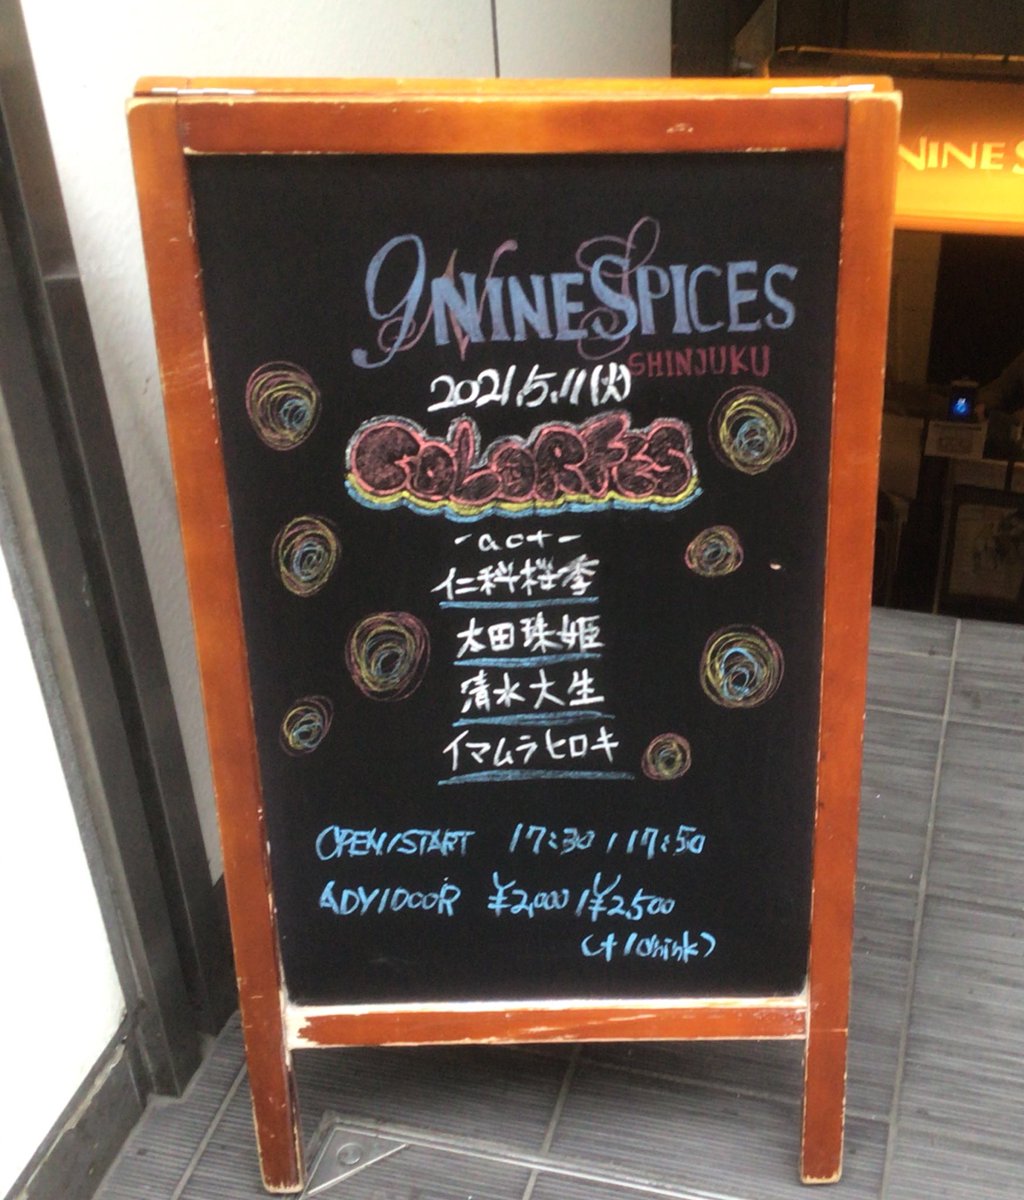 9NINESPICES
NINE S
SHINJUKU
2021.5.11(火)
COLORFES
-act-
仁科桜季
太田珠姫
清水大生
イマムラヒロキ
OPEN/START 17:30/17:50
ADV/DOOR ¥2,000/¥2,500
(+1drink)